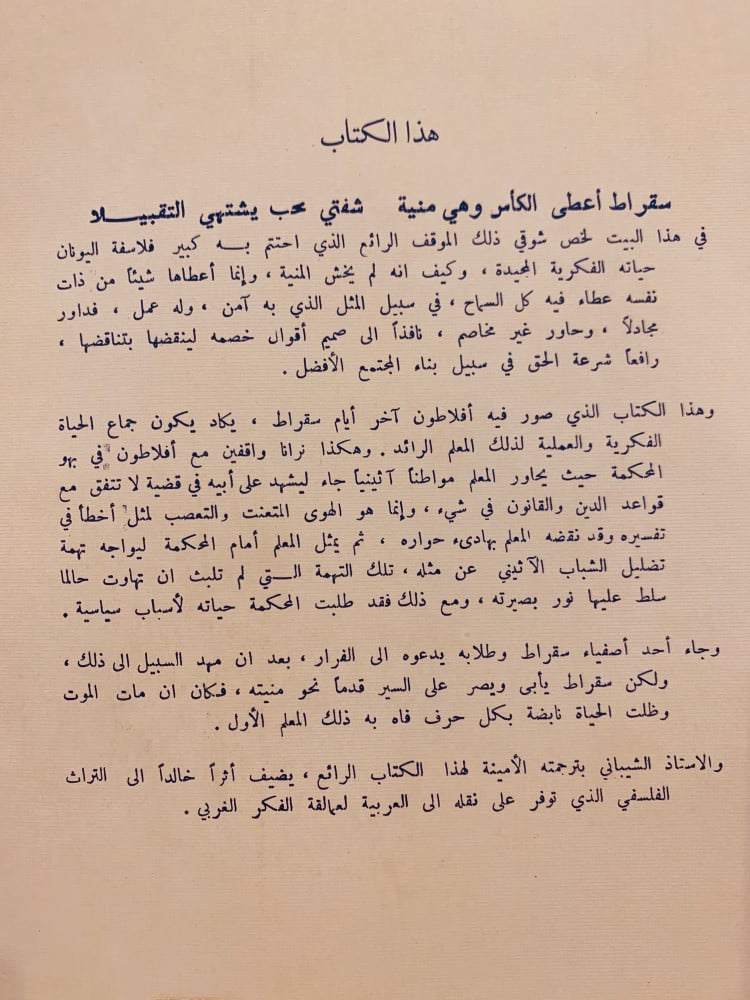 هذا الكتاب
سقراط أعطى الكأس وهي منية شفتي محب يشتهي التقبيلا
في هذا البيت لخص شوقي ذلك الموقف الرائع الذي احتتم به كبير فلاسفة اليونان
حياته الفكرية المجيدة ، وكيف انه لم يخش المنية ، وإنما أعطاها شيئاً من ذات
نفسه عطاء فيه كل السماح ، في سبيل المثل الذي به آمن ، وله عمل ، فداور
مجادلاً ، وحاور غير مخاصم ، نافذاً الى صميم أقوال خصمه لينقضها بتناقضها ،
رافعاً شرعة الحق في سبيل بناء المجتمع الأفضل .
وهذا الكتاب الذي صور فيه أفلاطون آخر أيام سقراط ، يكاد يكون جماع الحياة
الفكرية والعملية لذلك المعلم الرائد . وهكذا نرانا واقفين مع أفلاطون في بهو
المحكمة حيث يحاور المعلم مواطناً آثينياً جاء ليشهد على أبيه في قضية لا تتفق مع
قواعد الدين والقانون في شيء ، وإنما هو الهوى المتعنت والتعصب لمثل أخطأ في
تفسيره وقد نقضه المعلم بهادىء حواره ، ثم يمثل المعلم أمام المحكمة ليواجه تهمة
تضليل الشباب الآثيني عن مثله ، تلك التهمة الـتي لم تلبث ان تهاوت حالما
سلط عليها نور بصيرته ، ومع ذلك فقد طلبت المحكمة حياته لأسباب سياسية .
وجاء أحد أصفياء سقراط وطلابه يدعوه الى الفرار ، بعد ان مهد السبيل الى ذلك ،
ولكن سقراط يأبى ويصر على السير قدماً نحو منيته ، فكان ان مات الموت
وظلت الحياة نابضة بكل حرف فاه به ذلك المعلم الأول .
والاستاذ الشيباني بترجمته الأمينة لهذا الكتاب الرائع ، يضيف أثراً خالداً الى التراث
الفلسفي الذي توفر على نقله الى العربية لعمالقة الفكر الغربي .